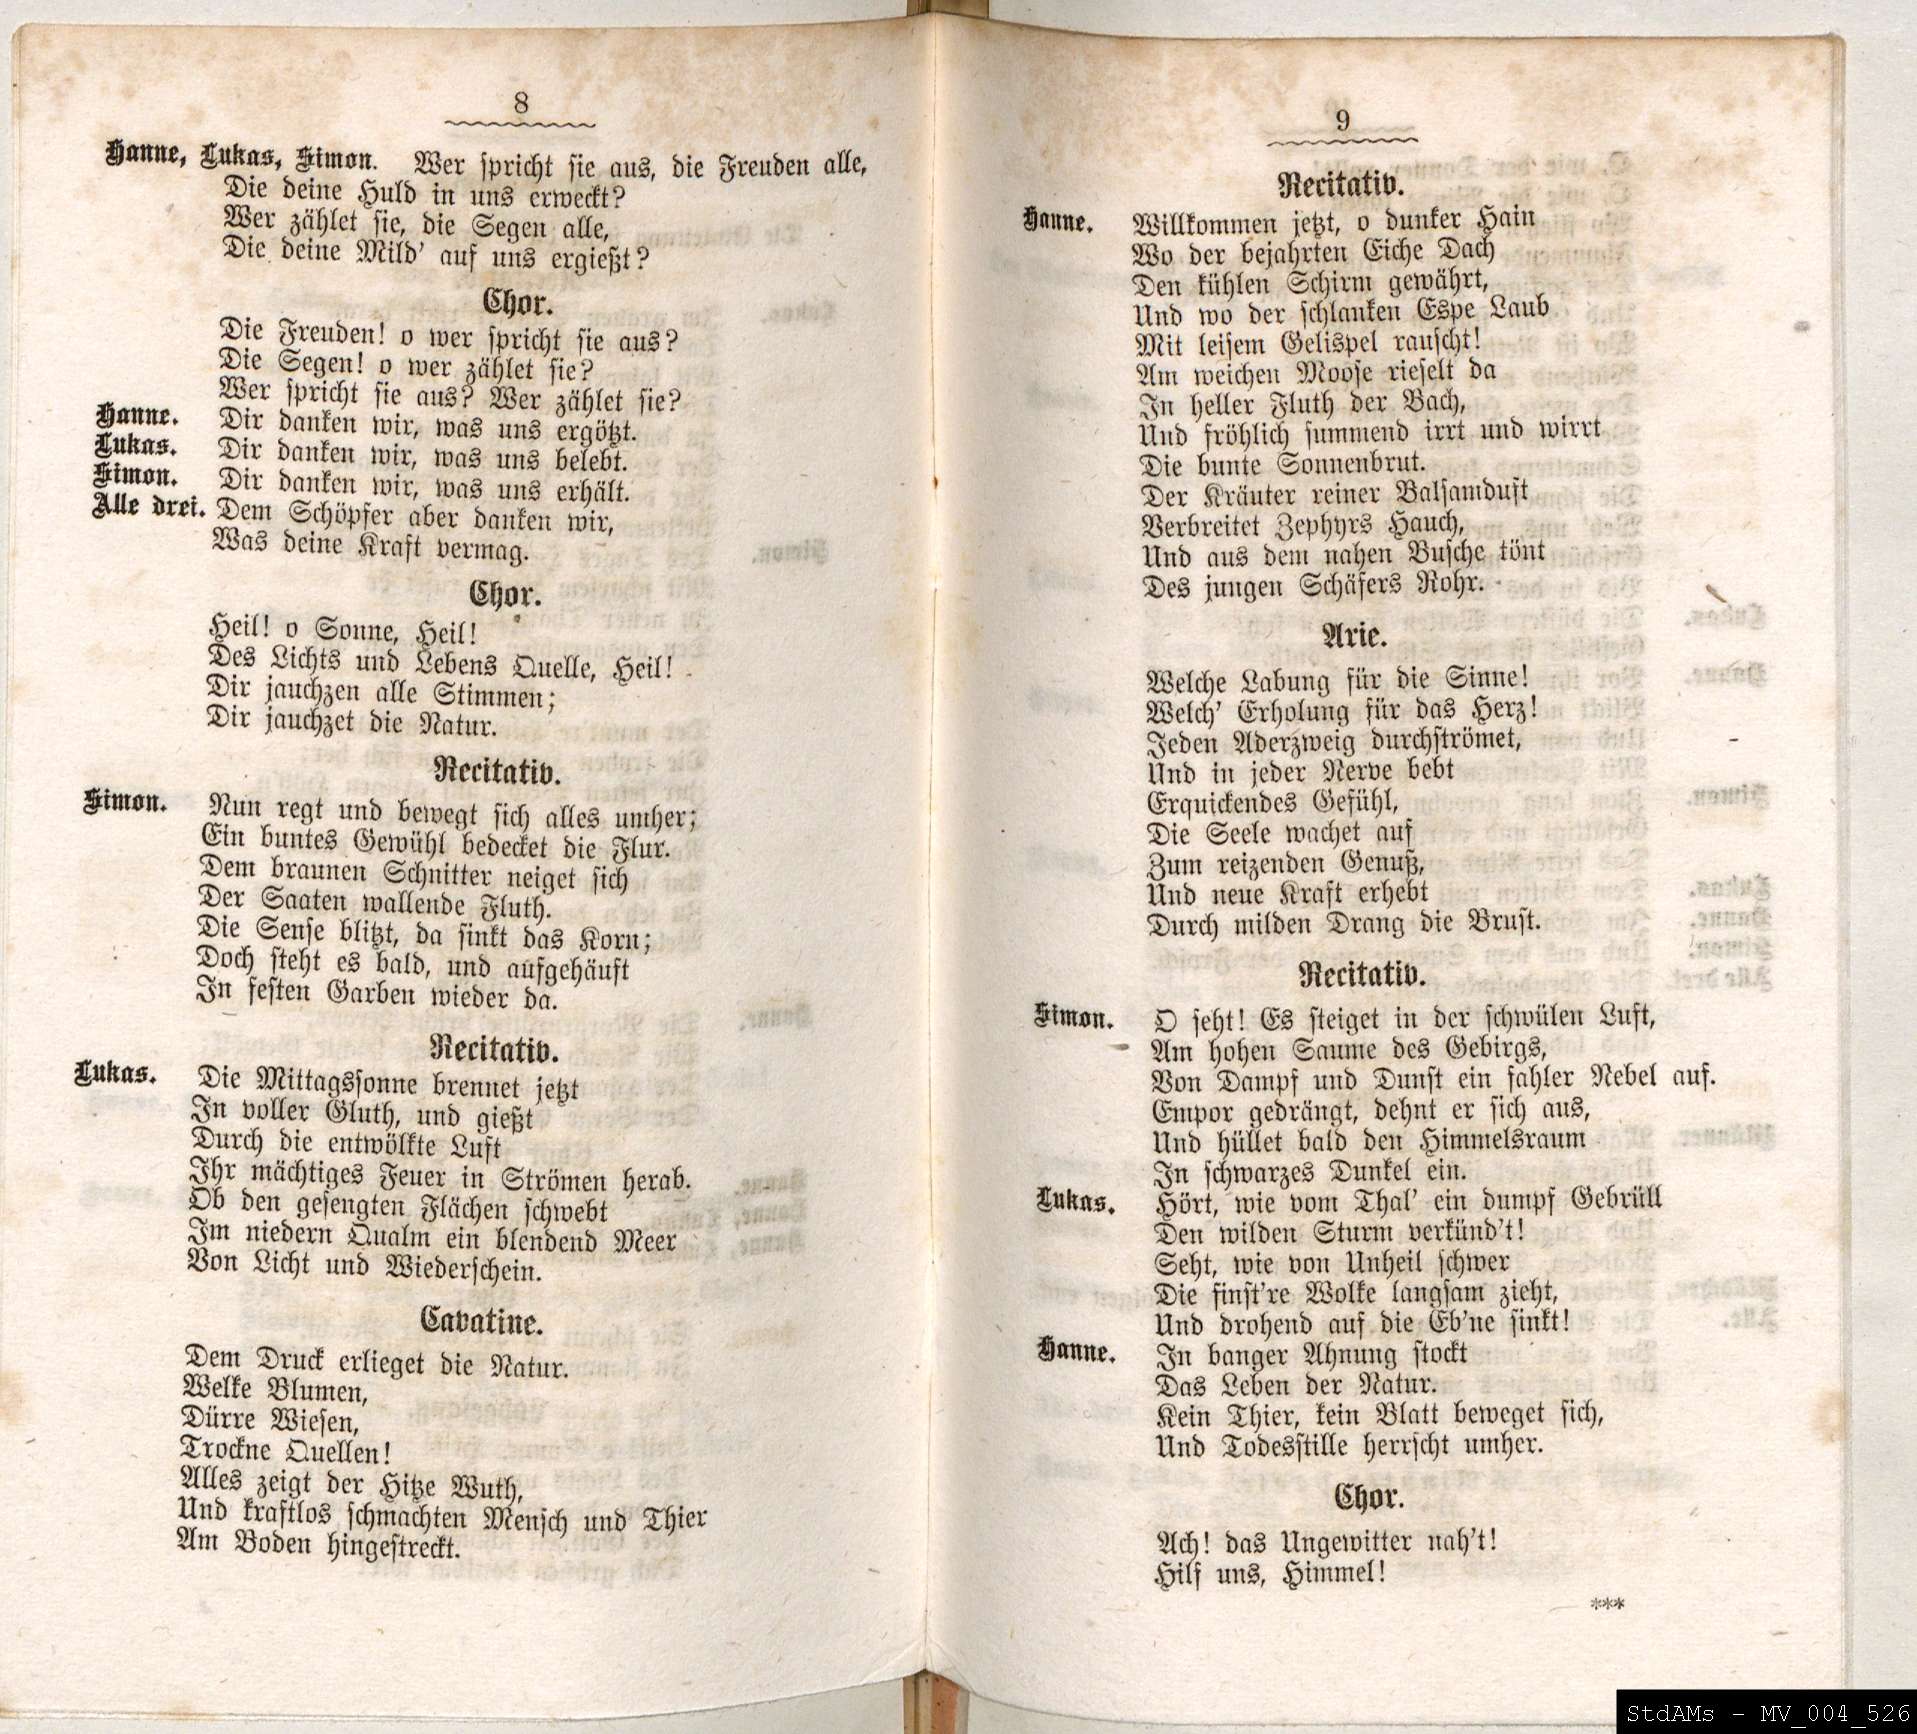 8
Hanne, Lukas, Simon. Wer spricht sie aus, die Freuden alle,
Die deine Huld in uns erweckt?
Wer zählet sie, die Segen alle,
Die deine Mild' auf uns ergießt?
Chor.
Die Freuden! o wer spricht sie aus?
Die Segen! o wer zählet sie?
Wer spricht sie aus? Wer zählet sie?
Hanne. Dir danken wir, was uns ergötzt.
Lukas. Dir danken wir, was uns belebt.
Simon. Dir danken wir, was uns erhält.
Alle drei. Dem Schöpfer aber danken wir,
Was deine Kraft vermag.
Chor.
Heil! o Sonne, Heil!
Des Lichts und Lebens Quelle, Heil!
Dir jauchzen alle Stimmen;
Dir jauchzet die Natur.
Recitativ.
Simon. Nun regt und bewegt sich alles umher;
Ein buntes Gewühl bedecket die Flur.
Dem braunen Schnitter neiget sich
Der Saaten wallende Fluth.
Die Sense blitzt, da sinkt das Korn;
Doch steht es bald, und aufgehäuft
In festen Garben wieder da.
Recitativ.
Lukas. Die Mittagssonne brennet jetzt
In voller Gluth, und gießt
Durch die entwölkte Luft
Ihr mächtiges Feuer in Strömen herab.
Ob den gesengten Flächen schwebt
Im niedern Qualm ein blendend Meer
Von Licht und Wiederschein.
Cavatine.
Dem Druck erlieget die Natur.
Welke Blumen,
Dürre Wiesen,
Trockne Quellen!
Alles zeigt der Hitze Wuth,
Und kraftlos schmachten Mensch und Thier
Am Boden hingestreckt.
9
Recitativ.
Hanne. Willkommen jetzt, o dunker Hain
Wo der bejahrten Eiche Dach
Den kühlen Schirm gewährt,
Und wo der schlanken Espe Laub
Mit leisem Gelispel rauscht!
Am weichen Moose rieselt da
In heller Fluth der Bach,
Und fröhlich summend irrt und wirrt
Die bunte Sonnenbrut.
Der Kräuter reiner Balsamduft
Verbreitet Zephyrs Hauch,
Und aus dem nahen Busche tönt
Des jungen Schäfers Rohr.
Arie.
Welche Labung für die Sinne!
Welch' Erholung für das Herz!
Jeden Aderzweig durchströmet,
Und in jeder Nerve bebt
Erquickendes Gefühl,
Die Seele wachet auf
Zum reizenden Genuß,
Und neue Kraft erhebt
Durch milden Drang die Brust.
Recitativ.
Simon. O seht! Es steiget in der schwülen Luft,
Am hohen Saume des Gebirgs,
Von Dampf und Dunst ein fahler Nebel auf.
Empor gedrängt, dehnt er sich aus,
Und hüllet bald den Himmelsraum
In schwarzes Dunkel ein.
Lukas. Hört, wie vom Thal' ein dumpf Gebrüll
Den wilden Sturm verkünd't!
Seht, wie von Unheil schwer
Die finst're Wolke langsam zieht,
Und drohend auf die Eb'ne sinkt!
Hanne. In banger Ahnung stockt
Das Leben der Natur.
Kein Thier, kein Blatt beweget sich,
Und Todesstille herrscht umher.
Chor.
Ach! das Ungewitter nah't!
Hilf uns, Himmel!
***
StdAMs - MV_004_526